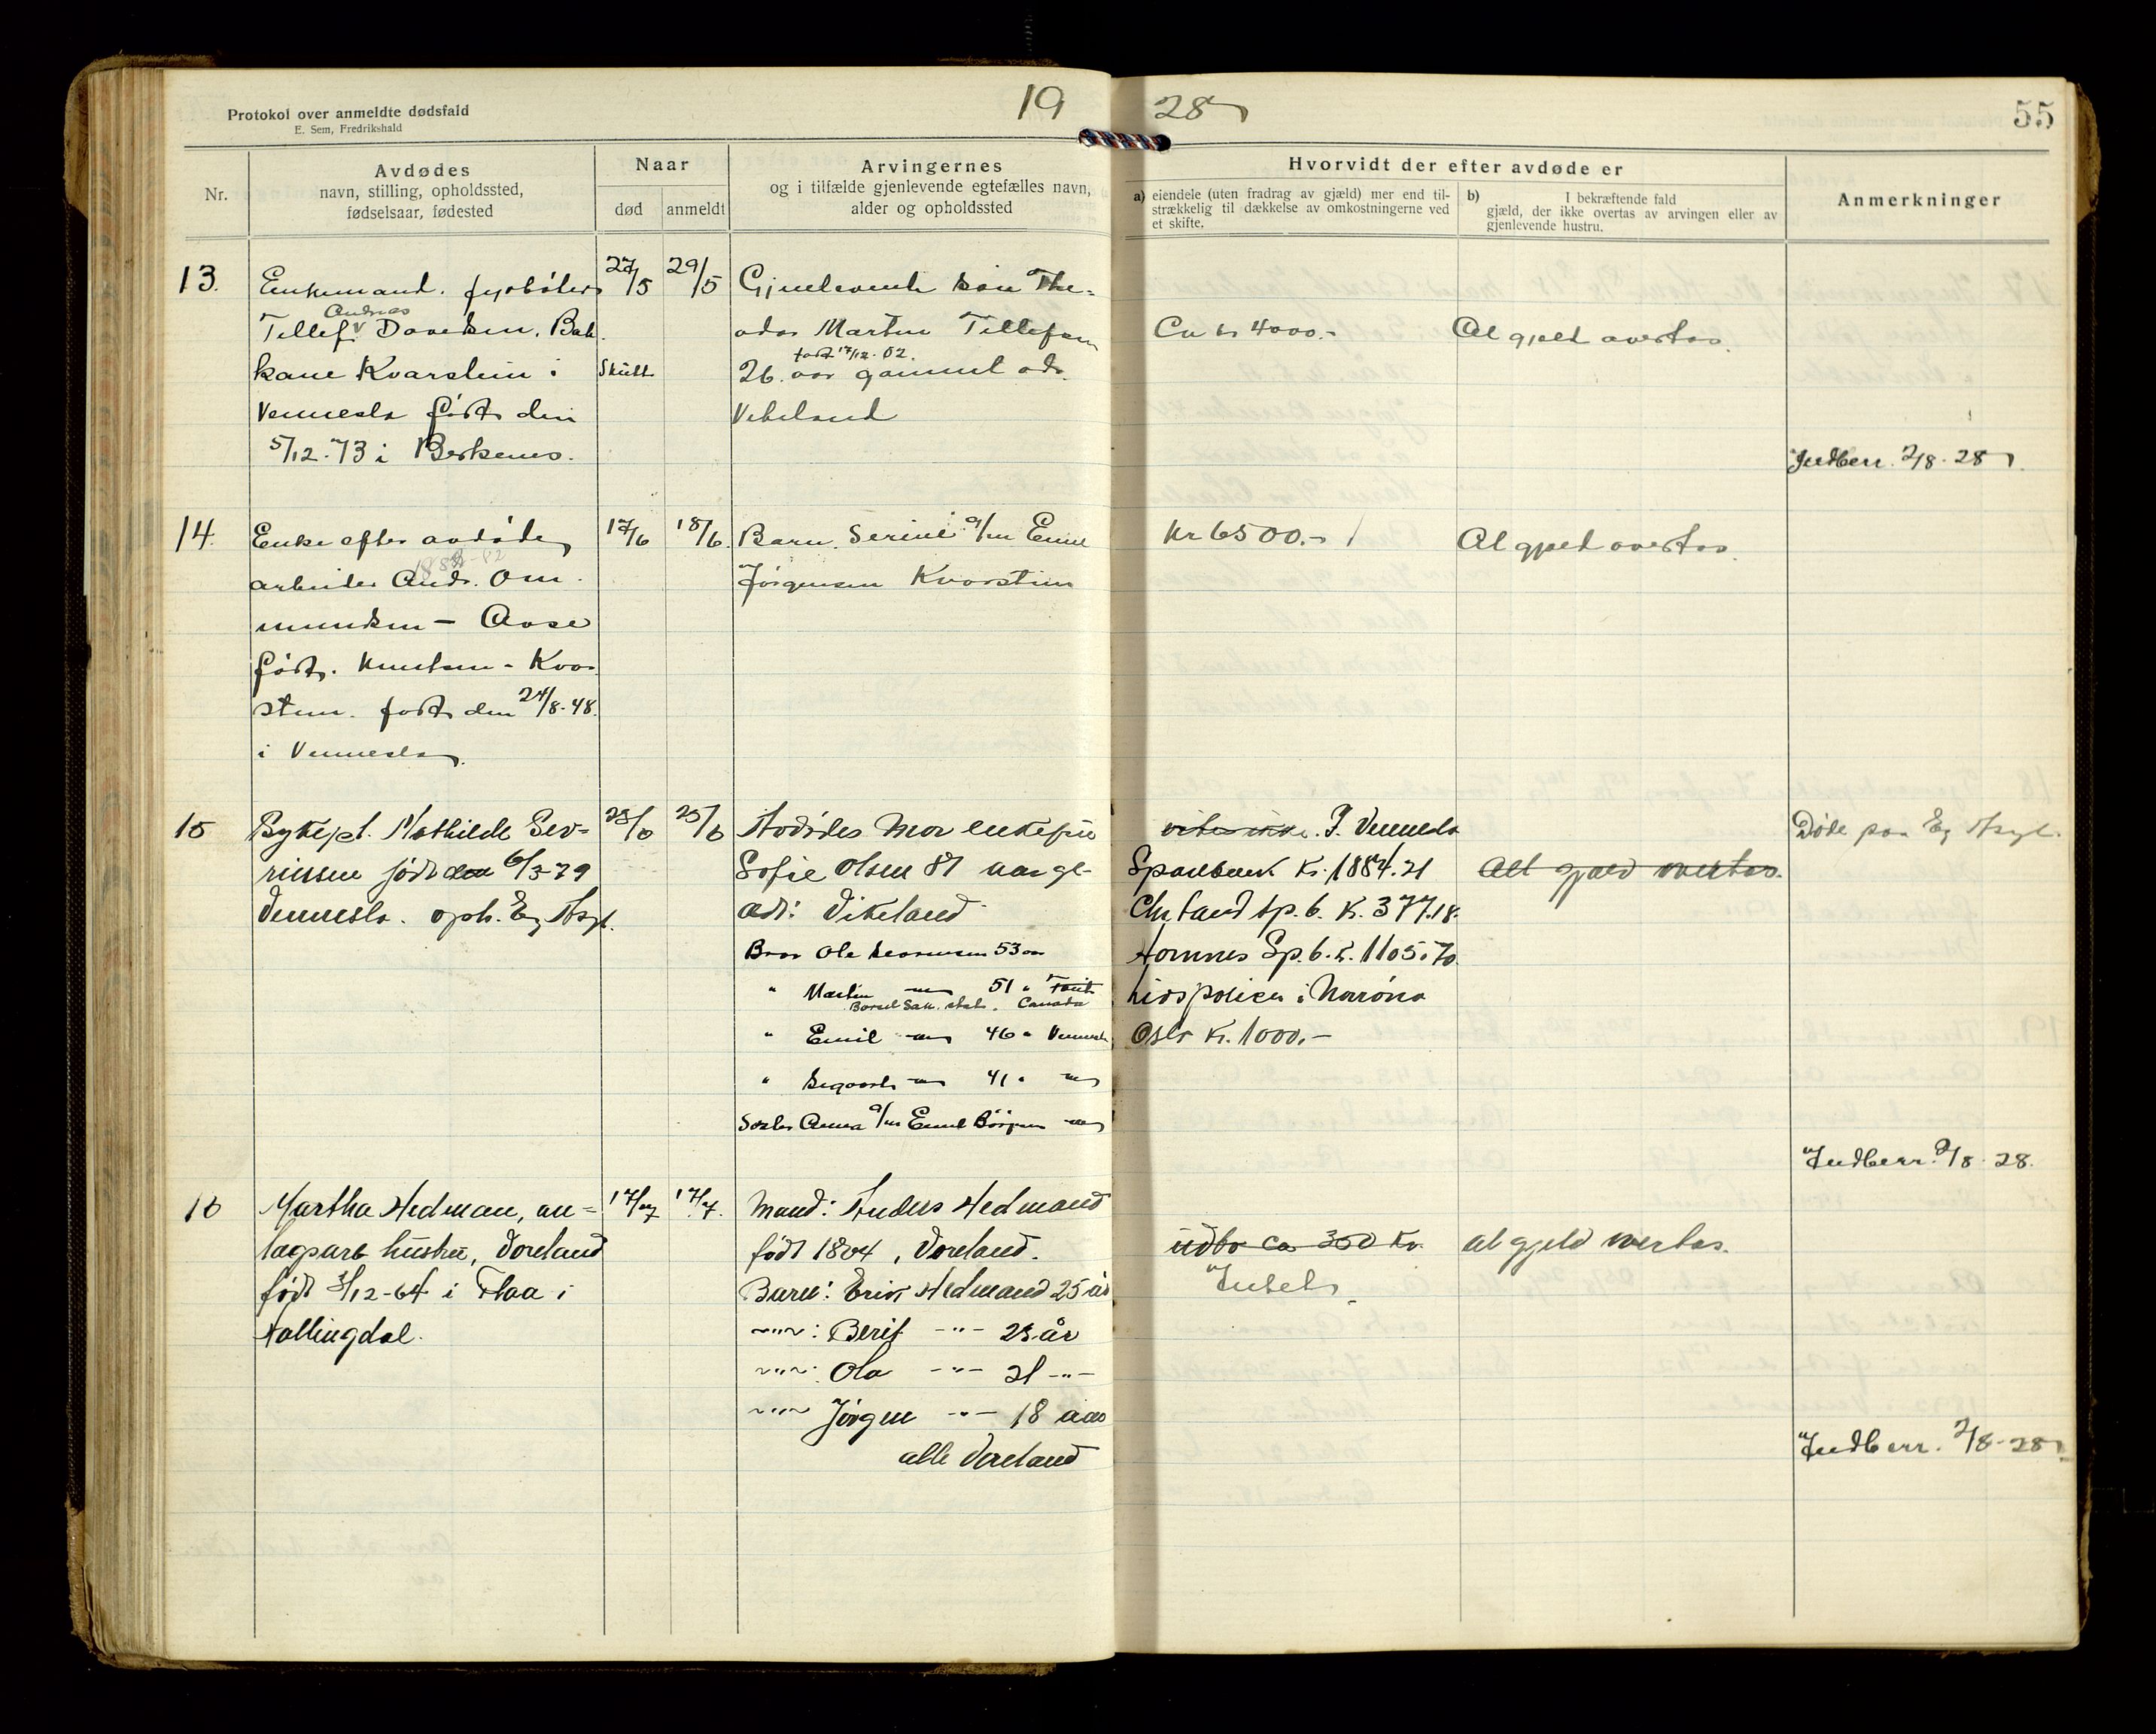 Protokol over anmeldte dødsfald
E. Sem, Fredrikshald
19 28
55
Nr.
Avdødes
navn, stilling, opholdssted,
fødselsaar, fødested
Naar
død
anmeldt
Arvingernes
og i tilfælde gjenlevende egtefælles navn,
alder og opholdssted
Hvorvidt der efter avdøde er
a) eiendele (uten fradrag av gjæld) mer end til-
strækkelig til dækkelse av omkostningerne ved
et skifte.
b) I bekræftende fald
gjæld, der ikke overtas av arvingen eller av
gjenlevende hustru.
Anmerkninger
13.
Enkemand. fyrbøter
Andreas
Tellef Davidsen. Bak
kane Kvarstein i
Vennesla født den
5/12-73 i Birkenes.
27/5
Skilt
29/5
Gjenlevende søn The-
odor Martin Tellefsen
født 17/12-02.
26 aar gammel adr.
Vikeland
Ca kr 4000.-
Al gjeld overtas.
Indberr. 2/8-28
14.
Enke efter avdøde
arbeider Andr. Om-
mundsen - Aase
født Knutsen - Kvar
stein. født den 24/8-48.
i Vennesla
17/6
18/6.
Barn. Serine g/m Emil
Jørgensen Kvarstein
Kr 6500.-
Al gjeld overtas.
15
Sykepl. Mathilde Sev-
rinsen født den 6/3-79
Vennesla. oph. Eg Asyl.
23/6
25/6
Avdødes Mor enkefru
Sofie Olsen 81 aar gl.
adr: Vikeland
Bror Ole Severinsen 53 aar
" Martin 51 "
Canada
" Emil 46 " Vennesla
" Sigvart 41 "
Søster Anna g/m Emil Børgesen
vites ikke. I. Vennesla
Sparebank Kr. 1884.21
Chr.sand Sp.b. K. 377.18.
Hornnes Sp.b. K. 1105.70.
Livspolice i Norrøna
Oslo Kr. 1000.-
Alt gjæld overtas.
Døde paa Eg Asyl.
Indberr. 2/8-28.
16
Martha Hedman, an-
lægsarb hustru, Voreland
født 3/12-64 i Flaa i
Hallingdal.
17/7
17/7.
Mand: Anders Hedmand
født 1864, Voreland.
Barn: Erik Hedmand 25 år
—"—: Berit —"— 23 år
—"—: Ola —"— 21 —"—
—"— Jørgen —"— 18 aar
alle Voreland
indbo ca 300 Kr.
Intet
al gjeld overtas.
Indberr. 2/8-28